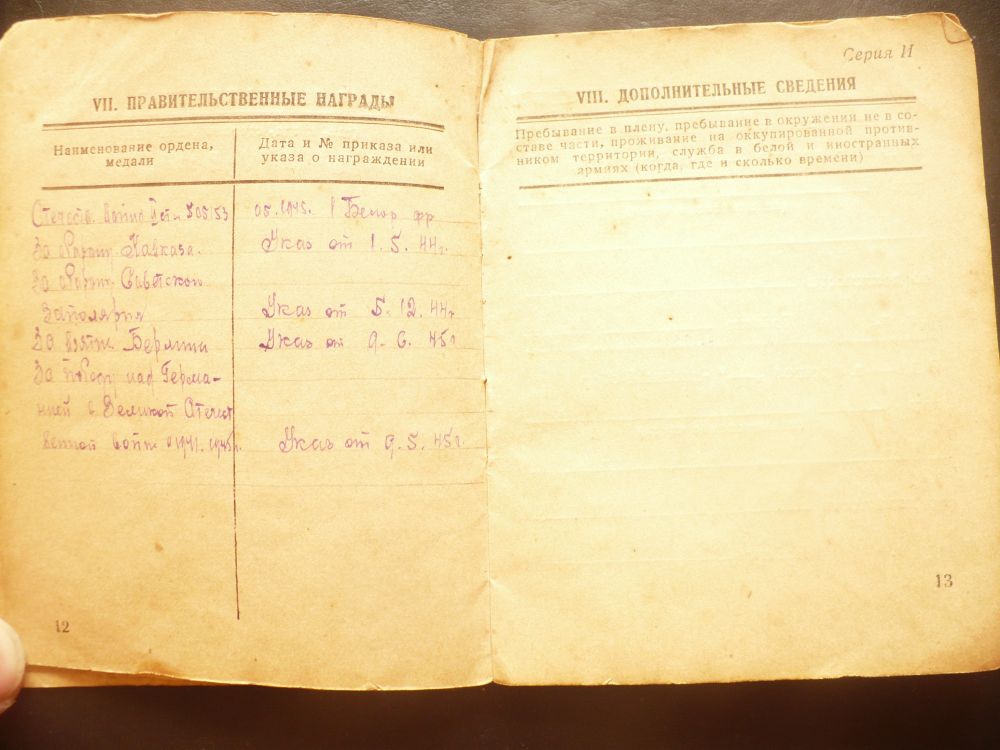 VII. ПРАВИТЕЛЬСТВЕННЫЕ НАГРАДЫ
Наименование ордена,
медали
Дата и № приказа или
указа о награждении
505153 05.1945. 1 Белор фр
За Кавказа. Указ от 1.5.44г.
За Советского
Заполярия Указ от 5.12.44г
За взятие Берлина Указ от 9.6.45г
За победу над Герма-
нией в Великой Отечест
венной войне 1941-1945г. Указ от 9.5.45г.
12
Серия И
VIII. ДОПОЛНИТЕЛЬНЫЕ СВЕДЕНИЯ
Пребывание в плену, пребывание в окружения не в со-
ставе части, проживание на оккупированной против-
ником территории, служба в белой и иностранных
армиях (когда, где и сколько времени)
13